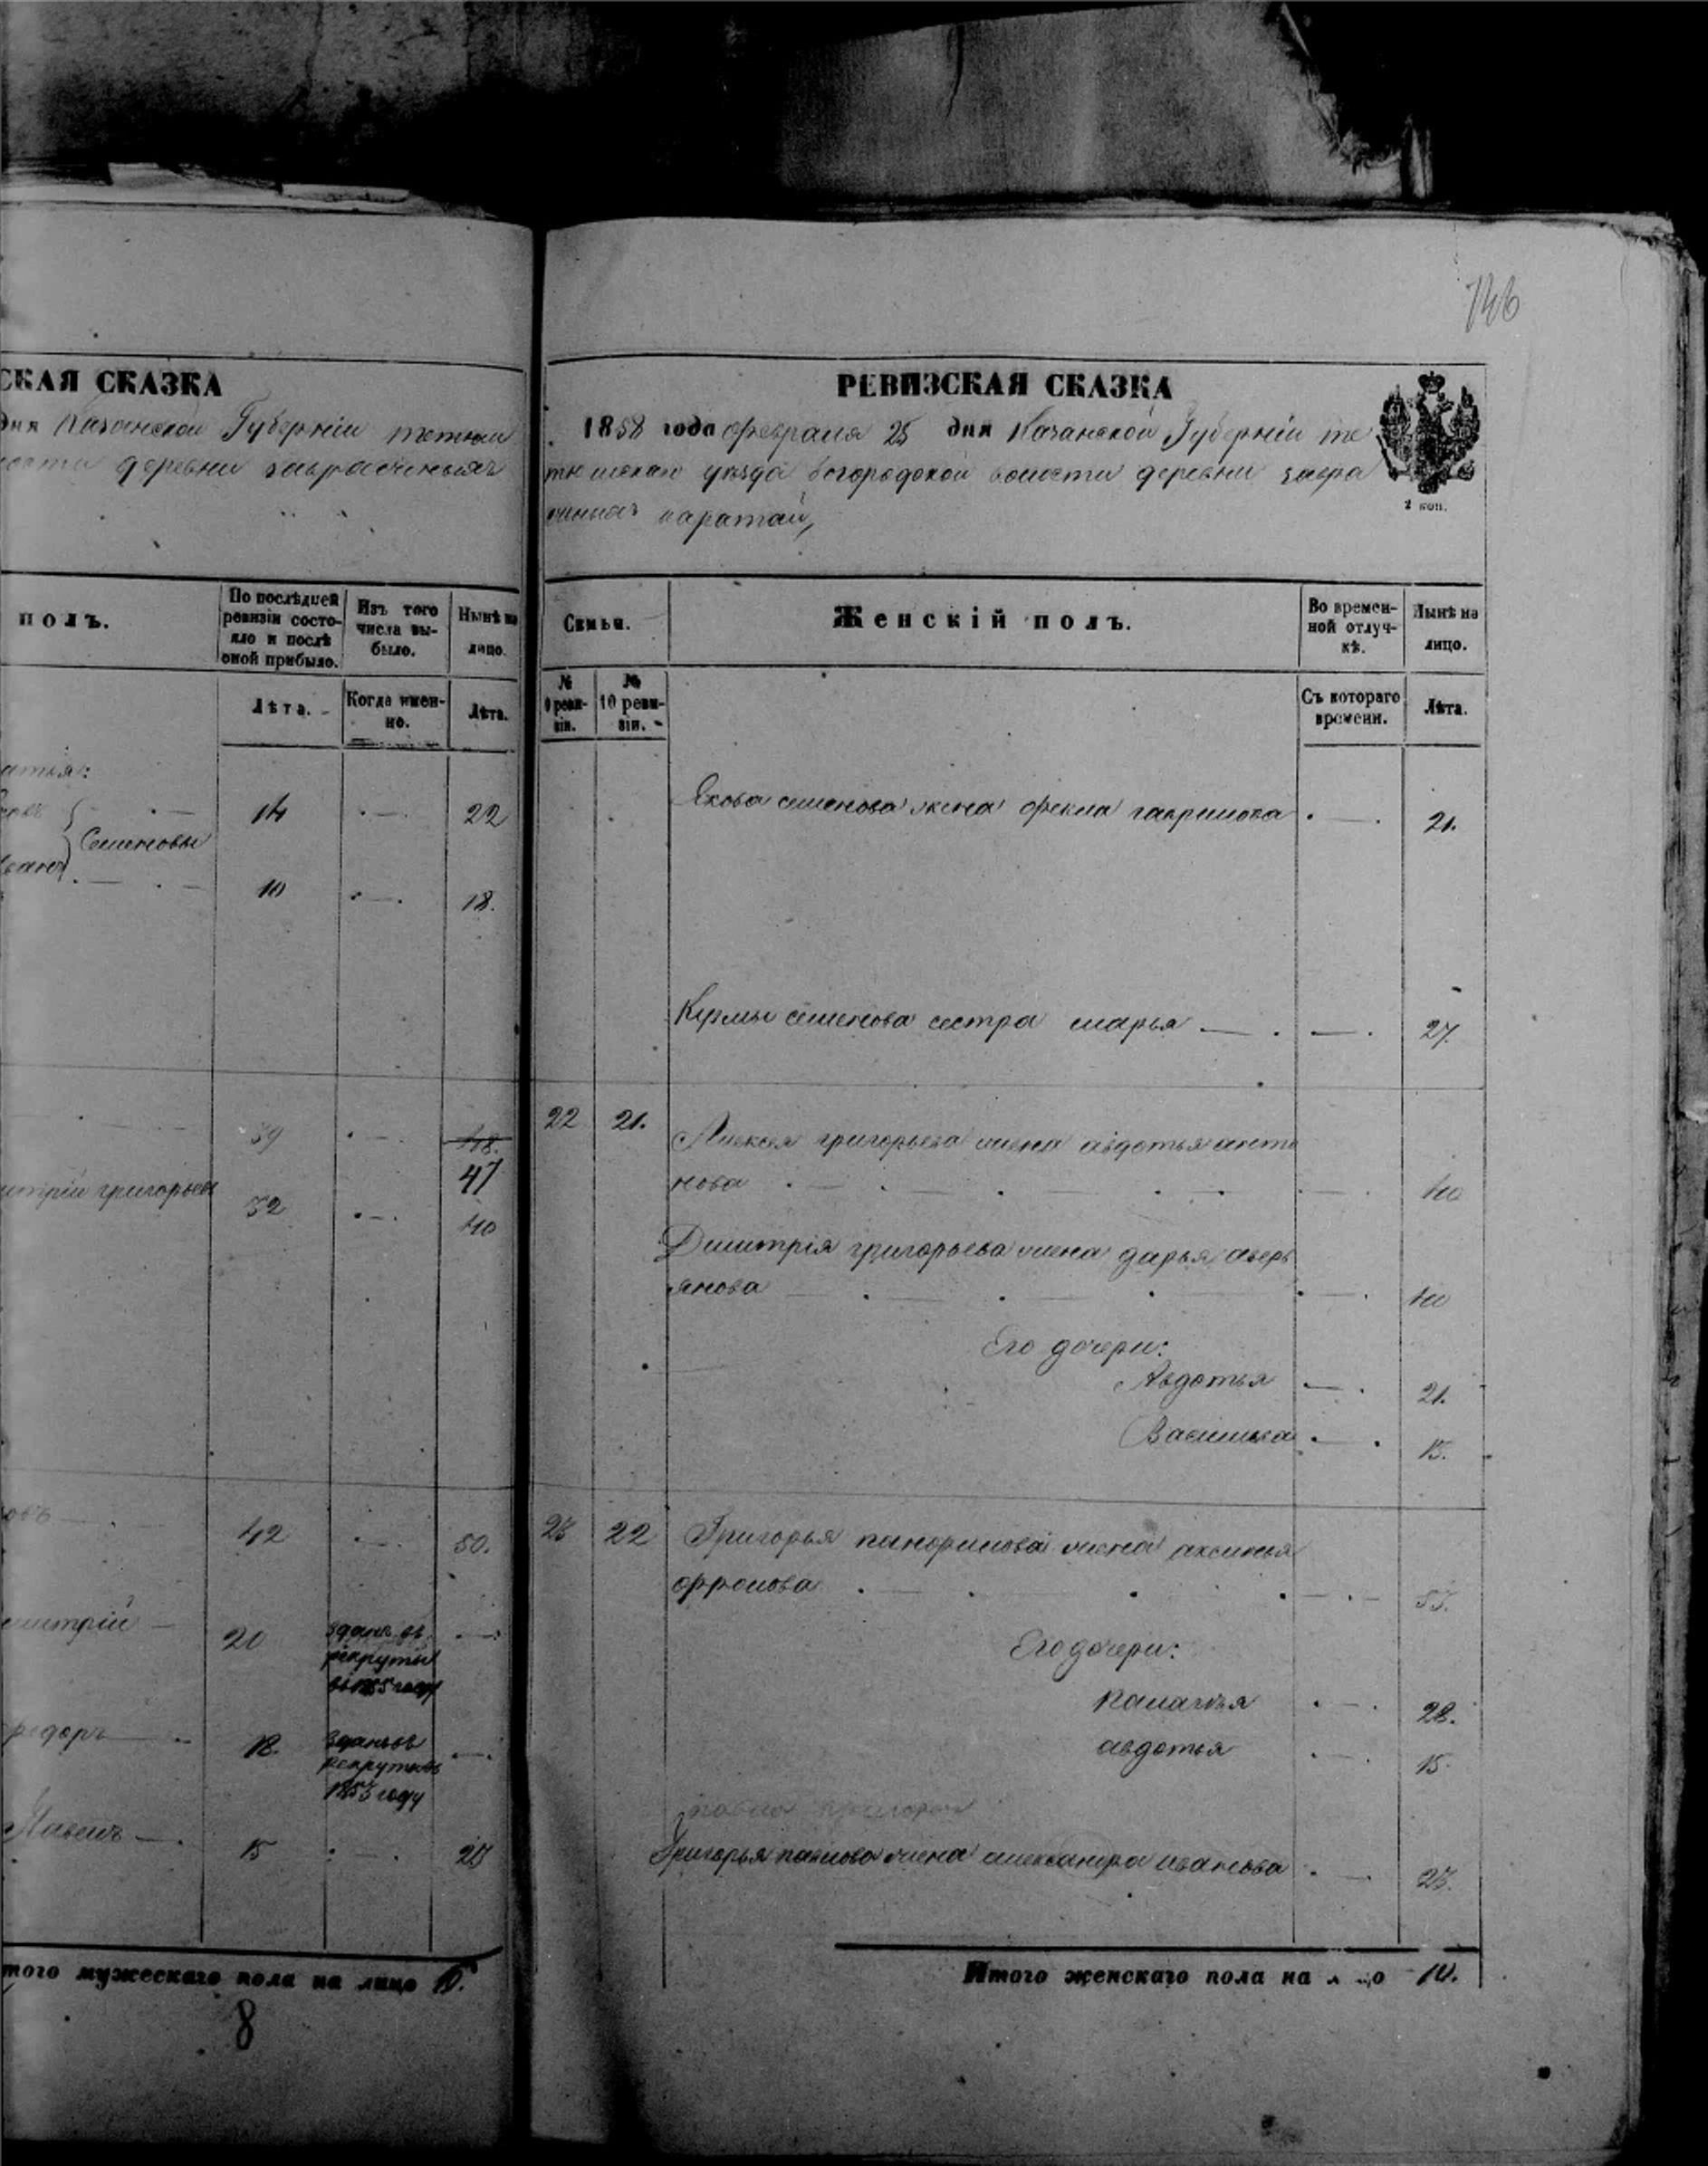 СКАЯ СКАЗКА
дня Казанской Губерніи тетюш
деревни
полъ.
По послѣдней ревизіи состояло и послѣ оной прибыло.
Изъ того числа выбыло.
Нынѣ на лицо.
Лѣта.
Когда именно.
Лѣта.
14 22
Семеновы
10 18.
39 48.
47
григорьевъ 32 40
42 50.
20 зданъ въ рекруты
едоръ 18. рекруты
1853 году
Павелъ 15
того мужескаго пола на лицо 10.
8
146
РЕВИЗСКАЯ СКАЗКА
1858 года февраля 25 дня Казанской Губерніи те
тюшскаго уѣзда богородской волости деревни
каратай,
2 коп.
Семьи.
Женскій полъ.
Во временной отлучкѣ.
Нынѣ на лицо.
№ 9 ревизіи.
№ 10 ревизіи.
Съ котораго времени.
Лѣта.
Якова семенова жена фекла гаврилова 21.
Кузмы семенова сестра марья 27.
22 21. Алексея григорьева жена авдотья анто
нова 40
Димитрія григорьева жена дарья аверь
янова 40
Его дочери:
Авдотья 21.
Василиса 15.
23 22 Григорья панфилова жена аксинья
фролова 53.
Его дочери:
28.
авдотья 15.
Григорья павлова жена александра иванова 23.
Итого женскаго пола на лицо 10.